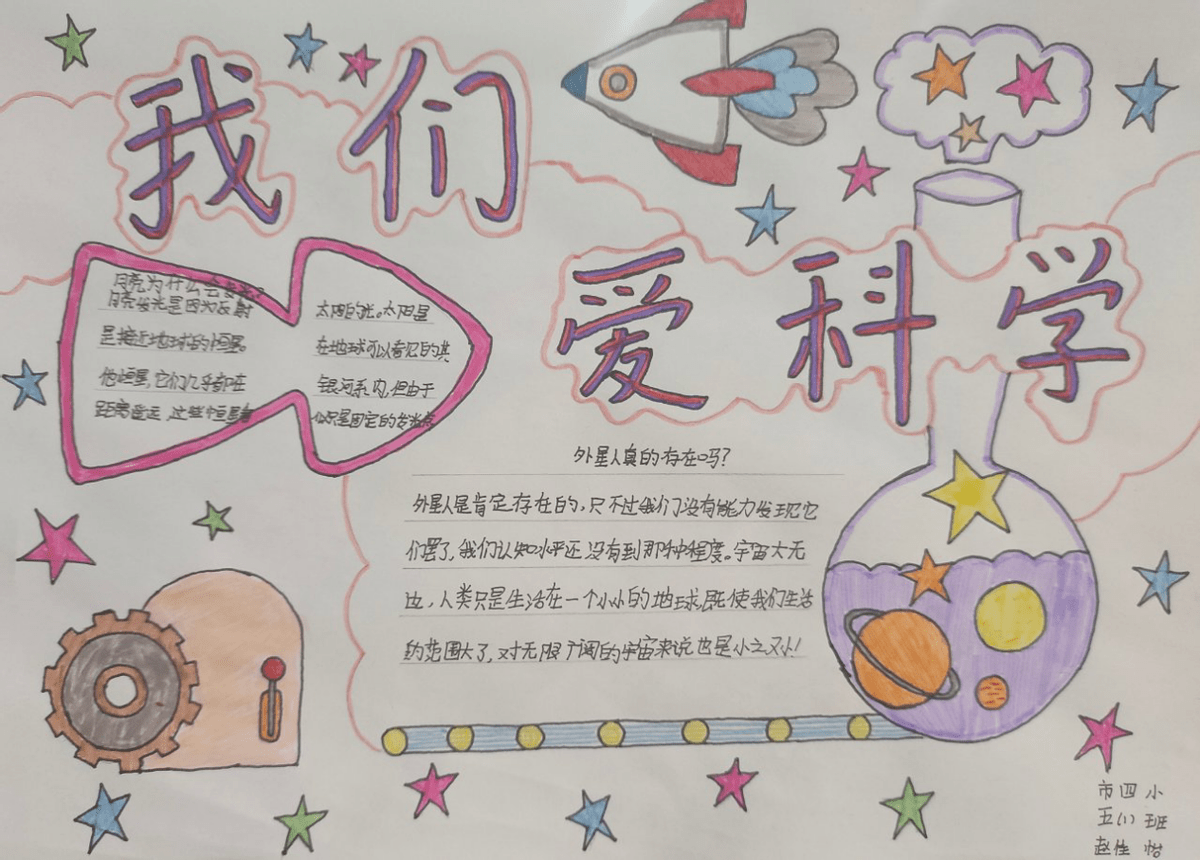 我们
爱科学
月亮为什么会发光?
月亮发光是因为反射
太阳的光。太阳是
是接近地球的恒星。
在地球可以看见的其
他恒星,它们几乎都在
银河系内,但由于
距离遥远,这些恒星看
似只是固定的发光点
外星人真的存在吗?
外星人是肯定存在的,只不过我们没有能力发现它
们罢了,我们认知水平还没有到那种程度。宇宙大无
边,人类只是生活在一个小小的地球,既使我们生活
的范围大了,对无限广阔的宇宙来说也是小之又小!
市四小
五(1)班
赵佳怡